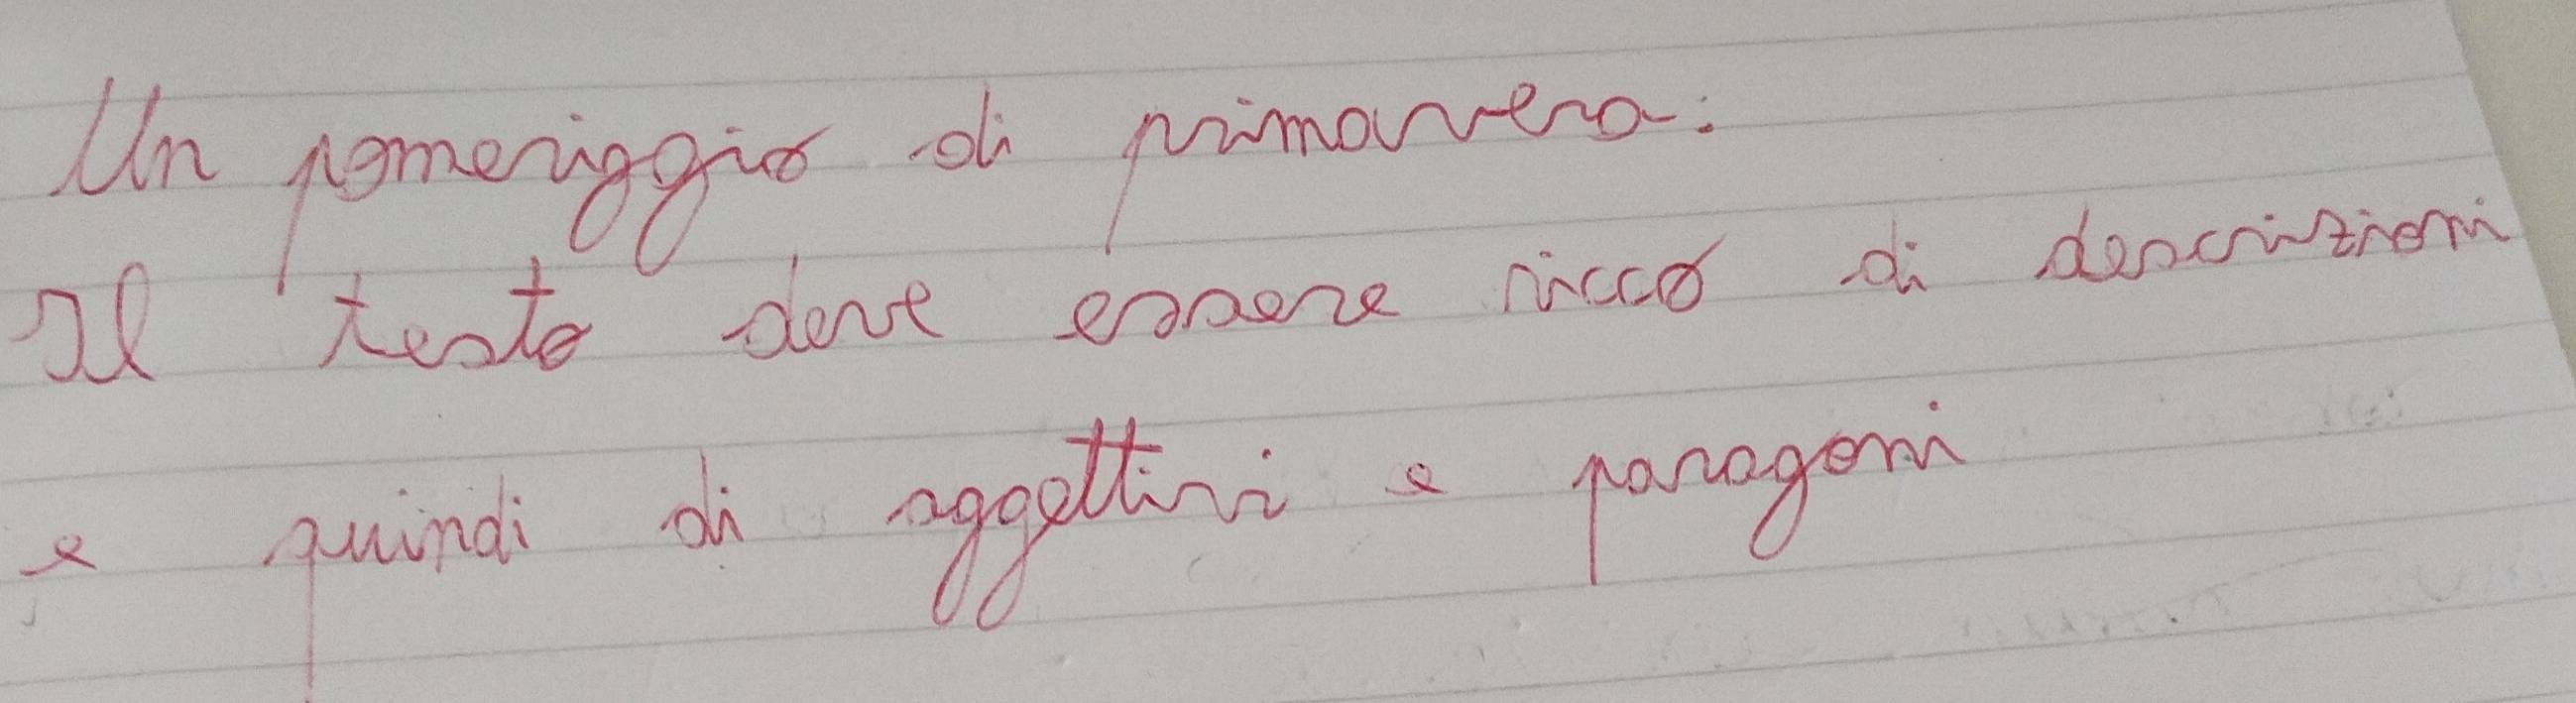 Un pomeriggio di primavera:
Il testo deve essere ricco di descrizioni
e quindi di aggettivi e paragoni